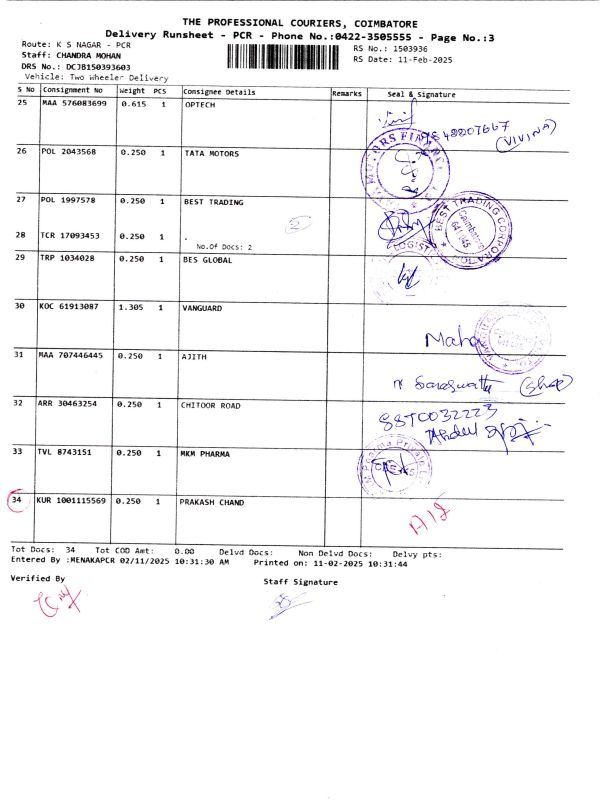 THE PROFESSIONAL COURIERS, COIMBATORE
Delivery Runsheet - PCR - Phone No.:0422-3505555 - Page No.:3
Route: K S NAGAR - PCR
RS No.: 1503936
Staff: CHANDRA MOHAN
RS Date: 11-Feb-2025
DRS No.: DCJB150393603
Vehicle: Two Wheeler Delivery
S No Consignment No Weight PCS Consignee Details Remarks Seal & Signature
25 MAA 576083699 0.615 1 OPTECH
(VIVINA)
26 POL 2043568 0.250 1 TATA MOTORS
27 POL 1997578 0.250 1 BEST TRADING
BEST TRADING CORPORA
Coimbatore
641 045
28 TCR 17093453 0.250 1 .
2
No.Of Docs: 2
29 TRP 1034028 0.250 1 BES GLOBAL
30 KOC 61913087 1.305 1 VANGUARD
Maha
31 MAA 707446445 0.250 1 AJITH
Saraswathi (Shop)
32 ARR 30463254 0.250 1 CHITOOR ROAD
8870032223
33 TVL 8743151 0.250 1 MKM PHARMA
34 KUR 1001115569 0.250 1 PRAKASH CHAND
Tot Docs: 34 Tot COD Amt: 0.00 Delvd Docs: Non Delvd Docs: Delvy pts:
Entered By :MENAKAPCR 02/11/2025 10:31:30 AM Printed on: 11-02-2025 10:31:44
Verified By
Staff Signature